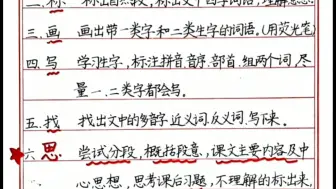 二.标 标出自然段,标出文中四字词语,理解意思.
三.画 画出带一类字和二类生字的词语,(用荧光笔)
四.写 学习生字,标注拼音.音序.部首.组两个词,尽
量一.二类字都会写。
五.找 找出文中的多音字.近义词.反义词.写下来。
六.思 尝试分段,概括段意,课文主要内容及中
心思想,思考课后习题,不理解的标出来,